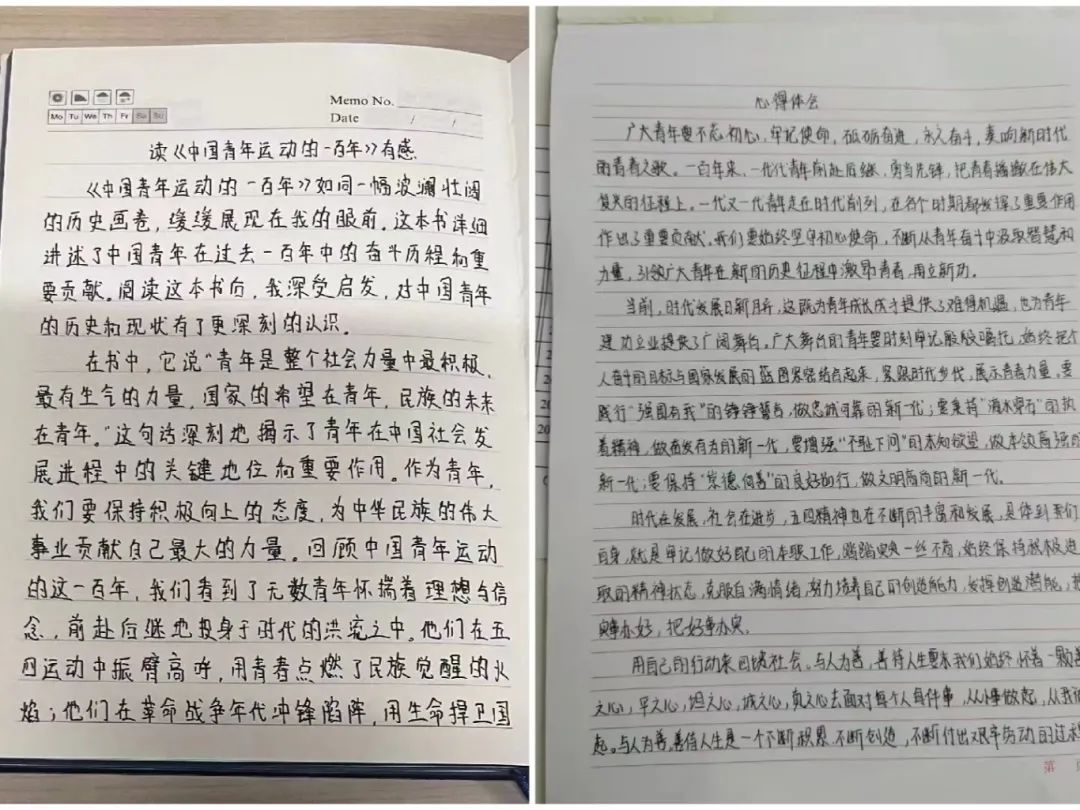 Memo No.
Mo Tu We Th Fr Sa Su
Date / /
读《中国青年运动的一百年》有感.
《中国青年运动的一百年》如同一幅波澜壮阔
的历史画卷,缓缓展现在我的眼前。这本书详细
讲述了中国青年在过去一百年中的奋斗历程和重
要贡献。阅读这本书后,我深受启发,对中国青年
的历史和现状有了更深刻的认识。
在书中,它说“青年是整个社会力量中最积极、
最有生气的力量,国家的希望在青年,民族的未来
在青年。”这句话深刻地揭示了青年在中国社会发
展进程中的关键地位和重要作用。作为青年,
我们要保持积极向上的态度,为中华民族的伟大
事业贡献自己最大的力量。回顾中国青年运动
的这一百年,我们看到了无数青年怀揣着理想与信
念,前赴后继地投身于时代的洪流之中。他们在五
四运动中振臂高呼,用青春点燃了民族觉醒的火
焰;他们在革命战争年代冲锋陷阵,用生命捍卫国
心得体会
广大青年要不忘初心,牢记使命,砥砺奋进,永久奋斗,奏响新时代
的青春之歌。一百年来,一代代青年前赴后继,勇当先锋,把青春播撒在伟大
复兴的征程上。一代又一代青年走在时代前列,在各个时期都发挥了重要作用
作出了重要贡献。我们要始终坚守初心使命,不断从青年奋斗中汲取智慧和
力量,引领广大青年在新的历史征程中激昂青春,再立新功。
当前,时代发展日新月异,这既为青年成长成才提供了难得机遇,也为青年
建功立业提供了广阔舞台。广大舞台的青年要时刻牢记殷殷嘱托,始终把个
人奋斗的目标与国家发展的蓝图紧密结合起来,紧跟时代步伐,展示青春力量。要
践行“强国有我”的铮铮誓言,做忠诚可靠的新一代;要秉持“滴水穿石”的执
着精神,做奋发有为的新一代,要增强“不耻下问”的求知欲望,做本领高强的
新一代;要保持“崇德向善”的良好品行,做文明高尚的新一代。
时代在发展,社会在进步,五四精神也在不断的丰富和发展,具体到我们
自身,就是牢记做好自己的本职工作,踏踏实实一丝不苟,始终保持积极进
取的精神状态,克服自满情绪,努力培养自己的创造能力,发挥创造潜能,把
实事办好,把好事办实。
用自己的行动来回馈社会。与人为善,善待人生要求我们始终怀着一颗善
之心,平之心,坦之心,诚之心,真之心去面对每个人每件事,从小事做起,从我做
起。与人为善,善待人生是一个不断积累,不断创造,不断付出艰辛劳动的过程
第